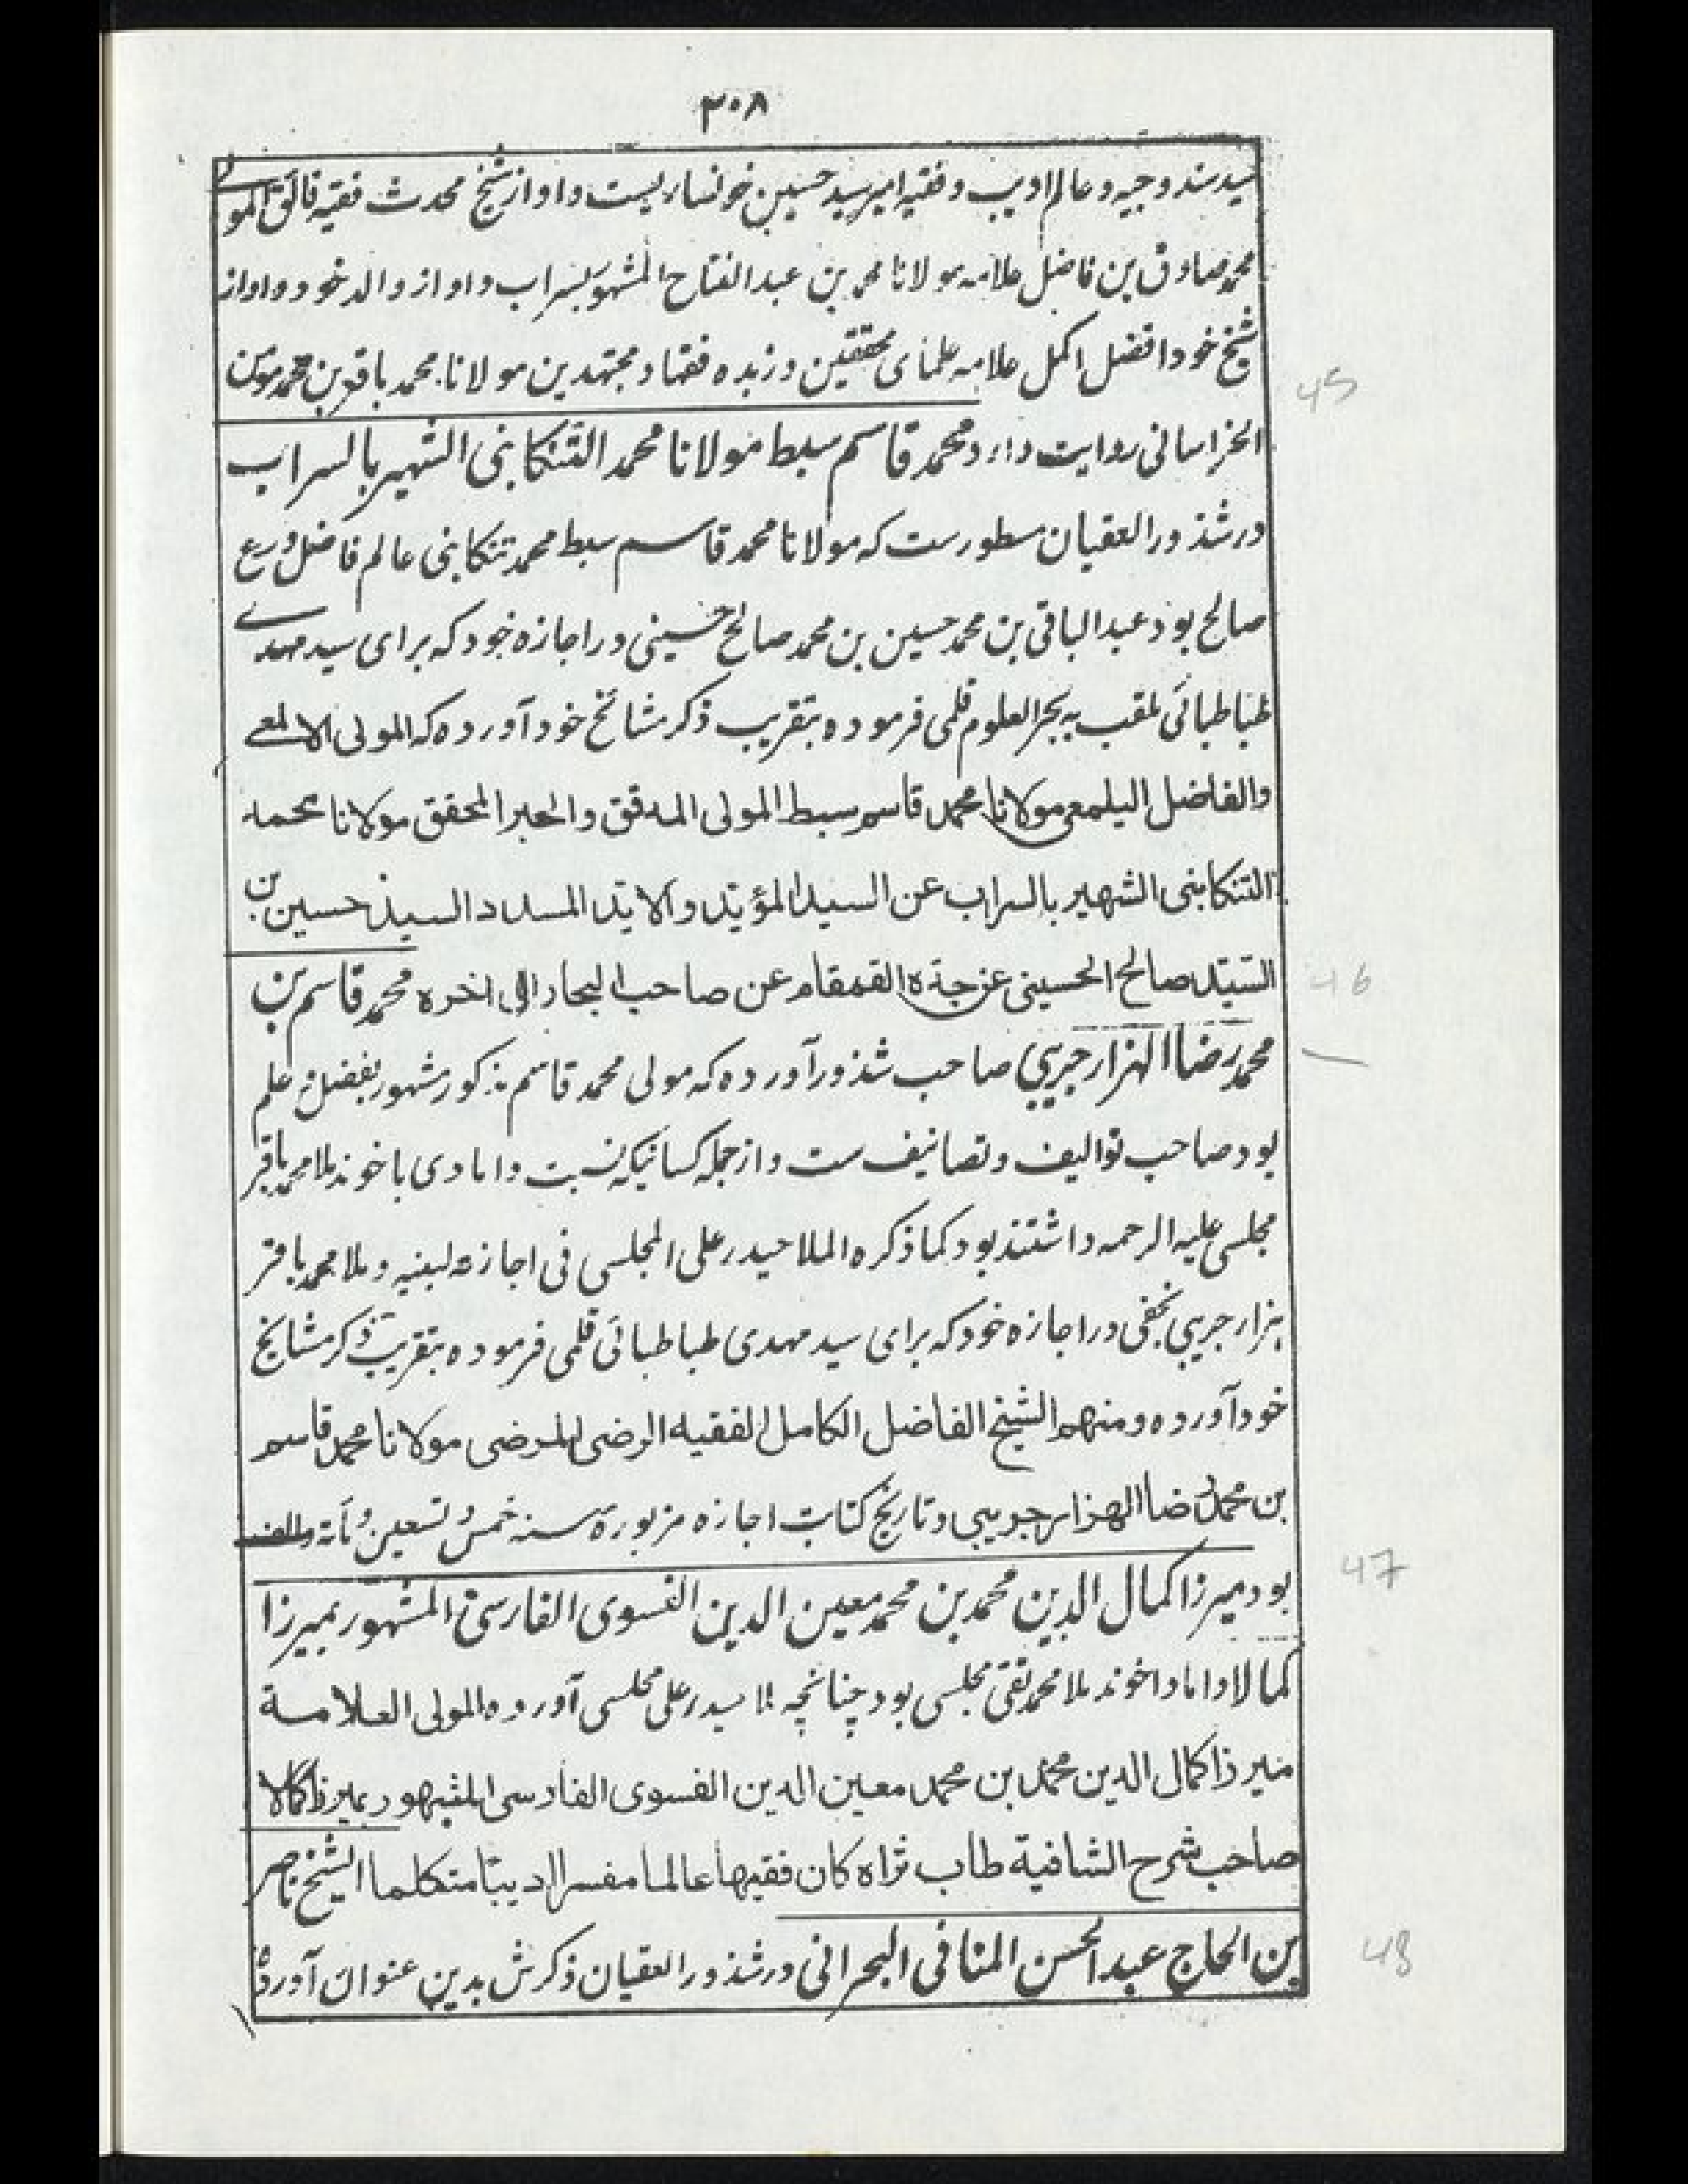 ۳۰۸
سید سند وجیه و عالم ادیب و فقیه امیر سید حسین خونساریست و او از شیخ محدث فقیه فائق المولی
محمد صادق بن فاضل علامه مولانا محمد بن عبد الفتاح المشهور بسراب و او از والد خود و او از
شیخ خود افضل اکمل علامه علمای محققین و زبده فقها و مجتهدین مولانا محمد باقر بن محمد مومن
45
الخراسانی روایت دارد محمد قاسم سبط مولانا محمد التنکابنی الشهیر بالسراب
در شذور العقیان مسطورست که مولانا محمد قاسم سبط محمد تنکابنی عالم فاضل ورع
صالح بود عبد الباقی بن محمد حسین بن محمد صالح حسینی در اجازه خود که برای سید مهدے
طباطبائی ملقب به بحر العلوم قلمی فرموده بتقریب ذکر مشائخ خود آورده که المولی الالمعے
والفاضل الیلمعی مولانا محمد قاسم سبط المولی المدقق والحبر المحقق مولانا محمد
التنکابنی الشهیر بالسراب عن السید المؤید والاید المسدد السید حسین بن
السید صالح الحسینی عن جده القمقام عن صاحب البحار الی اخره محمد قاسم بن
46
محمد رضا الهزار جریبی صاحب شذور آورده که مولی محمد قاسم مذکور مشهور بفضل و علم
بود صاحب توالیف و تصانیف ست و از جمله کسانیکه نسبت دامادی باخوند ملا محمد باقر
مجلسی علیه الرحمه داشتند بود کما ذکره الملا حیدر علی المجلسی فی اجازته لبنیه و ملا محمد باقر
هزار جریبی نجفی در اجازه خود که برای سید مهدی طباطبائی قلمی فرموده بتقریب ذکر مشایخ
خود آورده و منهم الشیخ الفاضل الکامل الفقیه الرضی المرضی مولانا محمد قاسم
بن محمد رضا الهزار جریبی و تاریخ کتابت اجازه مزبورة سنه خمس و تسعین و مأته والف
47
بود میرزا کمال الدین محمد بن محمد معین الدین الفسوی الفارسی المشهور بمیرزا
کمالا داماد اخوند ملا محمد تقی مجلسی بود چنانچه ملا حیدر علی مجلسی آورده المولی العلامة
میرزا کمال الدین محمد بن محمد معین الدین الفسوی الفارسی المشهور بمیرزا کمالا
صاحب شرح الشافیة طاب ثراه کان فقیها عالما مفسرا ادیبا متکلما الشیخ ناصر
48
بن الحاج عبد الحسن المنافی البحرانی در شذور العقیان ذکرش بدین عنوان آورده